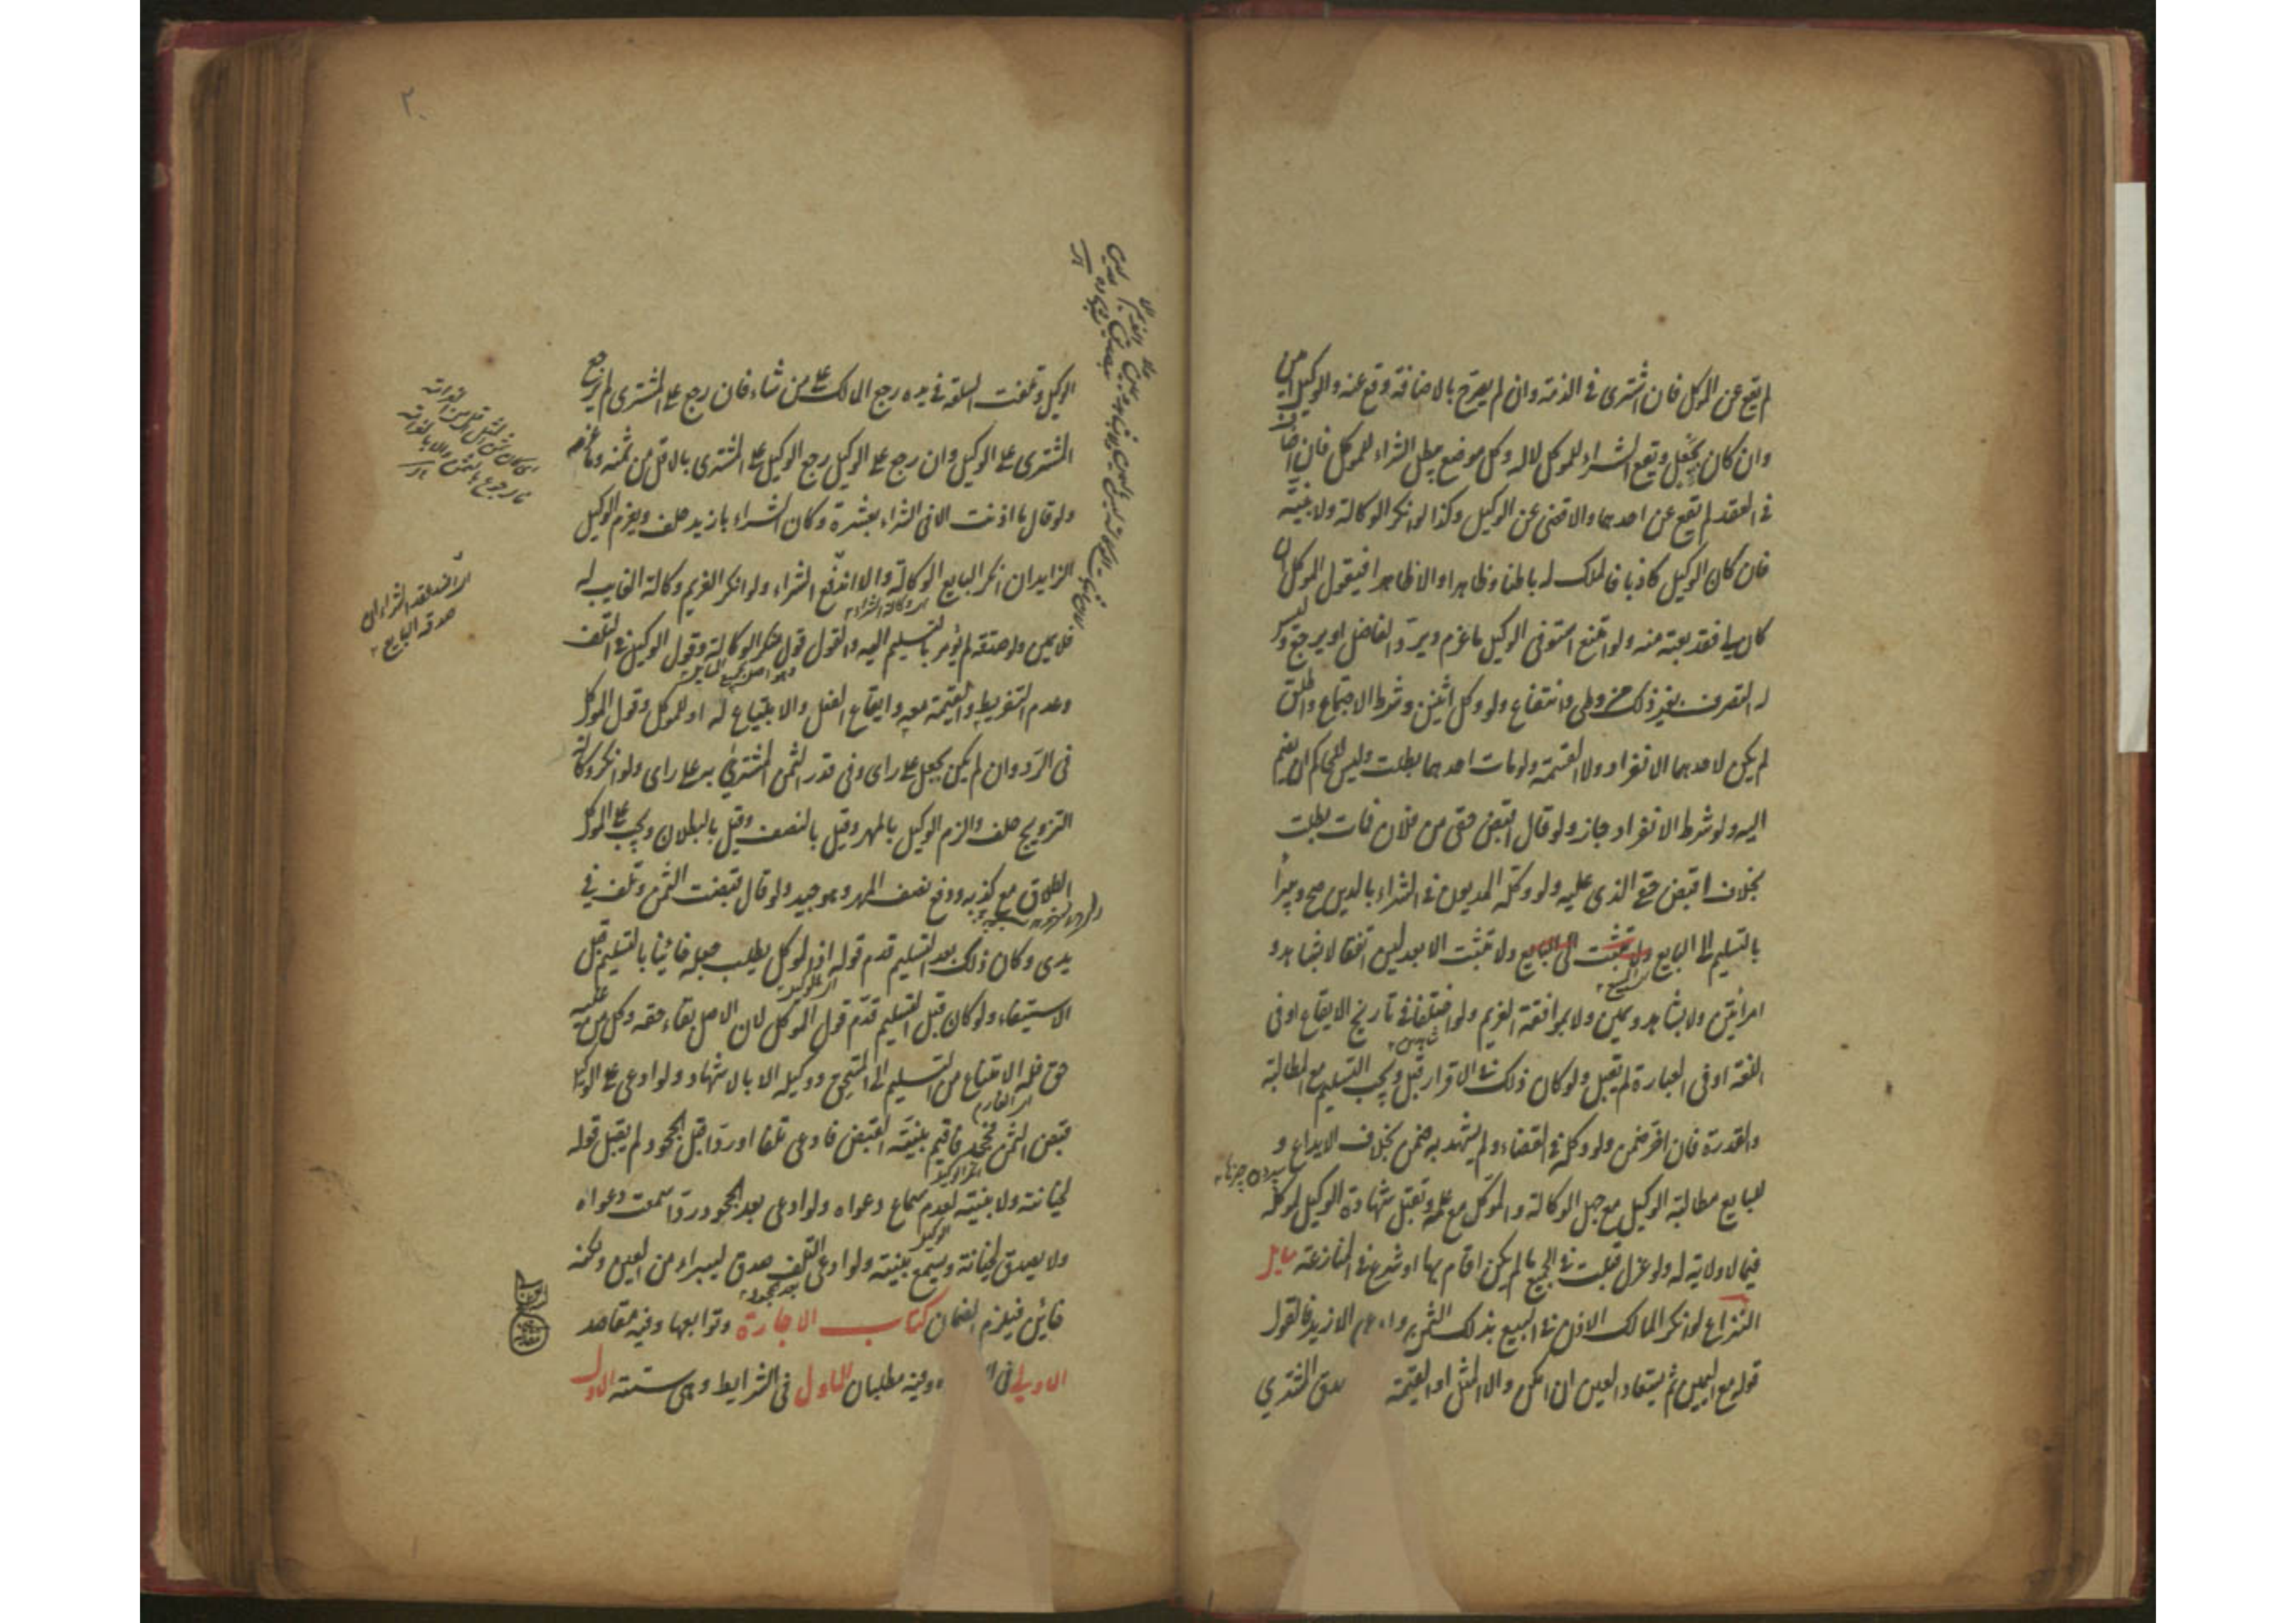 لم يقع عن الموكل فان اشترى في الذمة وان لم يصرح بالاضافة وقع عنه والوكيل امين
وان كان بجعل ويقع الشراء للموكل لا له وكل موضع يبطل الشراء للموكل فان اضافه
في العقد لم يقع عن احدهما والا قضى عن الوكيل وكذا لو انكر الوكالة ولا بينة
فان كان الوكيل كاذبا فالملك له باطنا وظاهرا والا ظاهرا فيقول الموكل ان
كان لي فقد بعته منه ولو امتنع استوفى الوكيل ما غرم ويرد الفاضل او يرجع وليس
له التصرف بغير ذلك من وطي وانتفاع ولو وكل اثنين وشرط الاجتماع واطلق
لم يكن لاحدهما الانفراد ولا القسمة ولو مات احدهما بطلت وليس للحاكم ان يضم
اليه ولو شرط الانفراد جاز ولو قال اقبض حقي من فلان فمات بطلت
بخلاف اقبض حقي الذي عليه ولو وكله المديون في الشراء بالدين صح ويبرأ
بالتسليم الى البايع ولا تثبت الى البايع ولا تثبت الا بعدلين اتفقا لا بشاهد و
امراتين ولا بشاهد ويمين ولا بموافقة الغريم ولو اختلفا في تاريخ الايقاع او في
اللغة او في العبارة لم يقبل ولو كان ذلك في الاقرار قبل ويجب التسليم مع المطالبة
والقدرة فان اخر ضمن ولو وكله في القضاء ولم يشهد به ضمن بخلاف الايداع و
للبايع مطالبة الوكيل مع جهل الوكالة والموكل مع علمه وتقبل شهادة الوكيل لموكله
فيما لا ولاية له ولو عزل قبلت في الجميع ما لم يكن اقام بها او شرع في المنازعة
النزاع لو انكر المالك الاذن في البيع بذلك الثمن الازيد فالقول
قوله مع اليمين ثم يستعاد العين ان امكن والا المثل او القيمة المشتري
الوكيل وتلفت السلعة في يده رجع المالك على من شاء فان رجع على المشتري لم يرجع
المشتري على الوكيل وان رجع على الوكيل رجع الوكيل على المشتري بالاقل من ثمنه وما غرم
ولو قال ما اذنت الا في الشراء بعشرة وكان الشراء بازيد حلف ويغرم الوكيل
الزايد ان انكر البايع الوكالة والا اندفع الشراء ولو انكر الغريم وكالة الغايب له
فلا يمين ولو صدقه لم يؤمر بالتسليم اليه والقول قول منكر الوكالة وقول الوكيل في التلف
وعدم التفريط والقيمة معه وايقاع الفعل والابتياع له او للموكل وقول الموكل
في الرد وان لم يكن بجعل على راى وفي قدر الثمن المشترى به على راى ولو انكر وكالة
التزويج حلف والزم الوكيل بالمهر وقيل بالنصف وقيل بالبطلان ويجب على الموكل
الطلاق مع كذبه ودفع نصف المهر وهو جيد ولو قال قبضت الثمن وتلف في
يدي وكان ذلك بعد التسليم قدم قوله اذ الموكل يطلب جعله خائنا بالتسليم قبل
الاستيفاء ولو كان قبل التسليم قدم قول الموكل لان الاصل بقاء حقه وكل من عليه
حق فله الامتناع من التسليم الى المستحق ووكيله الا بالاشهاد ولو ادعى على الوكيل
قبض الثمن فجحد فاقيم بينة القبض فادعى تلفا او ردا قبل الجحود لم يقبل قوله
لخيانته ولا بينته لعدم سماع دعواه ولو ادعى بعد الجحود ردا سمعت دعواه
ولا يصدق لخيانته وتسمع بينته ولو ادعى التلف صدق ليبراء من العين ولكنه
خائن فيلزم الضمان كتاب الاجارة وتوابعها وفيه مقاصد
الاول في وفيه مطلبان الاول في الشرايط وهي ستة الاول